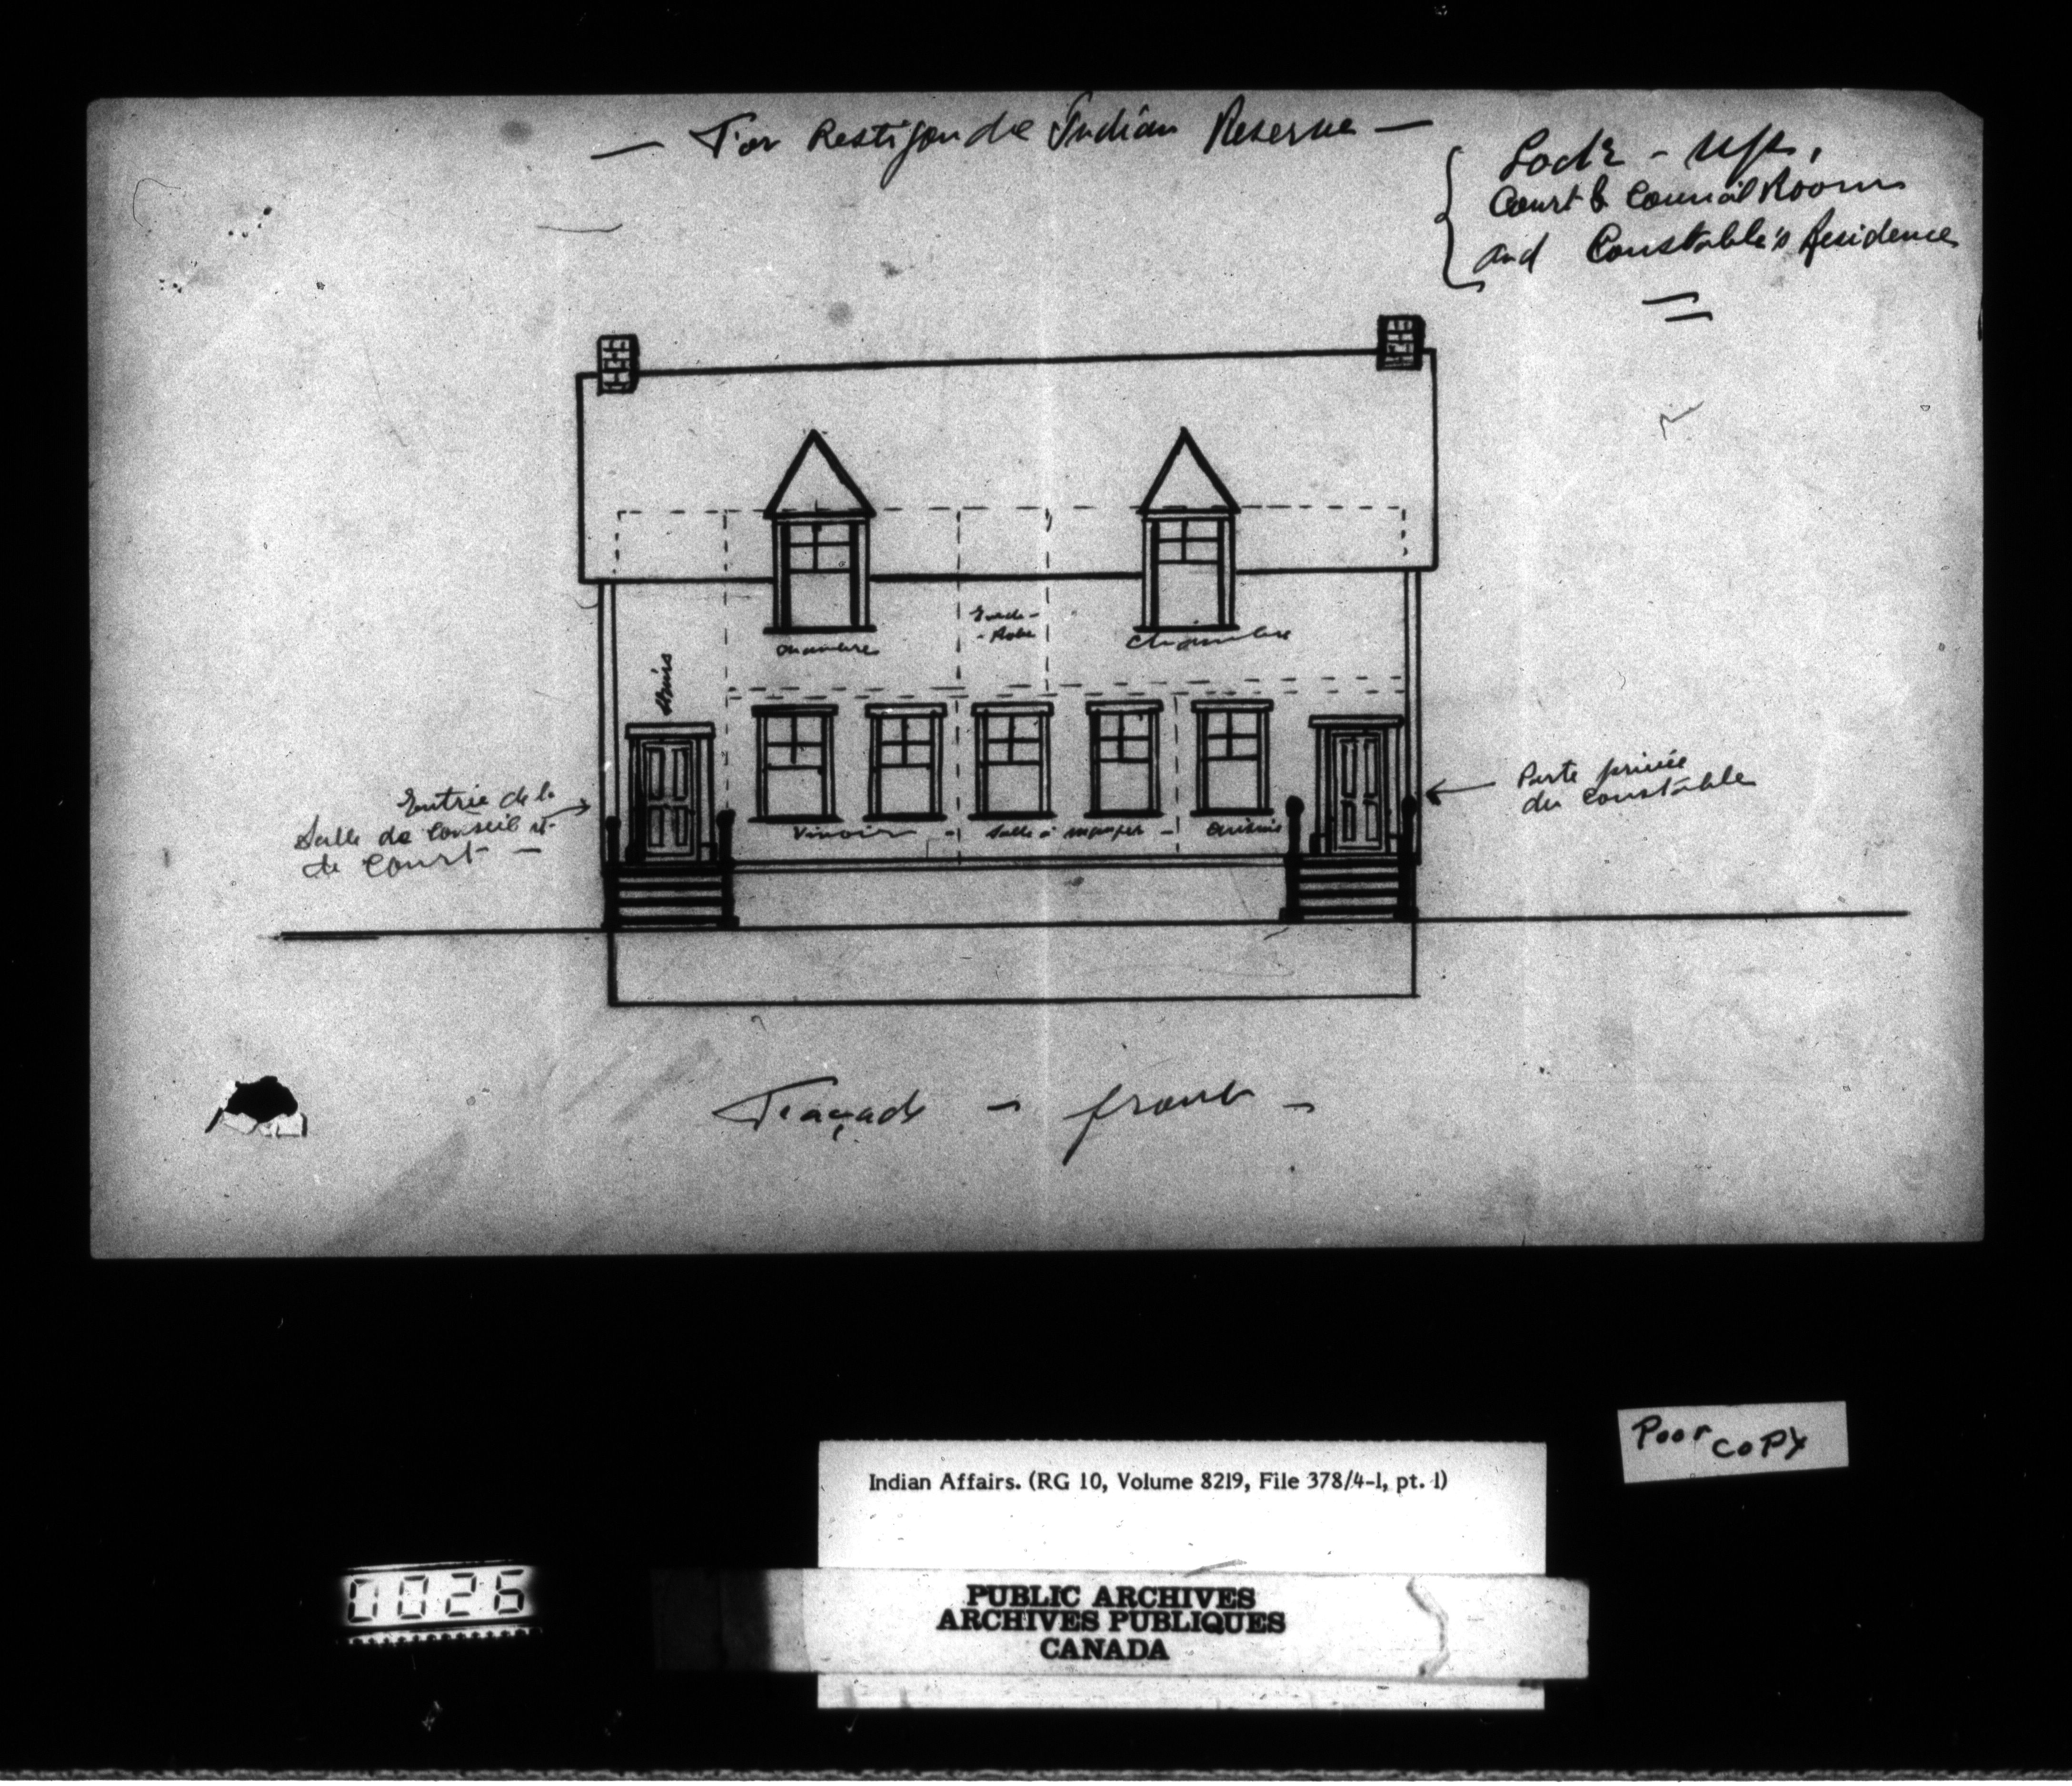 — For Restigouche Indian Reserve —
Lock-up,
Court & Council Room
and Constable's Residence
Garde-
-Robe
Chambre
Chambre
Stairs
Entrée de la
Salle de Conseil et
de Court —
Porte privée
du Constable
Vivoir - Salle à manger - Cuisine
Façade - front -
Poor copy
Indian Affairs. (RG 10, Volume 8219, File 378/4-1, pt. 1)
0026
PUBLIC ARCHIVES
ARCHIVES PUBLIQUES
CANADA